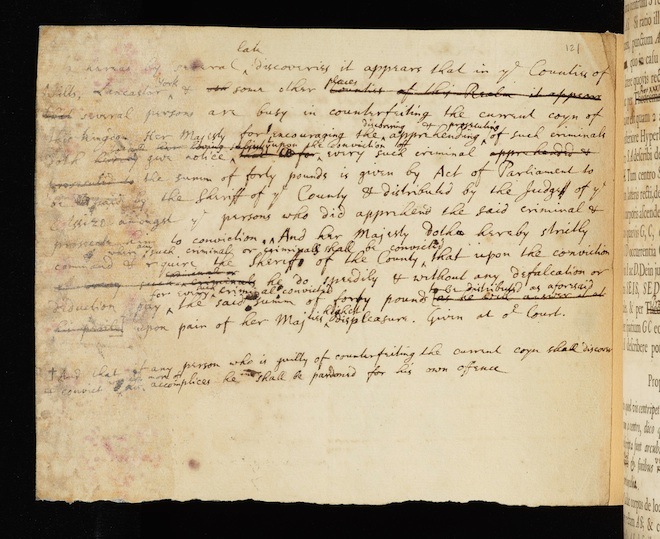 late
121
Whereas by several discoveries it appears that in ye Counties of
York
Wilts, Lancaster & some other Counties of this Realm it appears
places
several persons are busy in counterfeiting the current coyn of
discovering & prosecuting
this Kingdom Her Majesty for encouraging the apprehending of such criminals
upon the conviction of
doth give notice that as for every such criminal apprehended &
prosecuted to the summ of forty pounds is given by Act of Parliament to
be paid by the Sheriff of ye County & distributed by the Judges of ye
Assizes amongst ye persons who did apprehend the said criminal &
prosecute him to conviction, And her Majesty doth hereby strictly
where such criminal or criminals shall be convicted
command & require the Sheriff of the County that upon the conviction
criminal or
of every such criminals he do speedily & without any defalcation or
for every such criminal convicted
to be distributed as aforesaid
deduction pay the said summ of forty pounds as he will answer it at
highest
upon pain of her Majties displeasure. Given at or Court.
+ And that if any person who is guilty of counterfeiting the current coyn shall discover
& convict two or more of his accomplices he shall be pardoned for his own offence